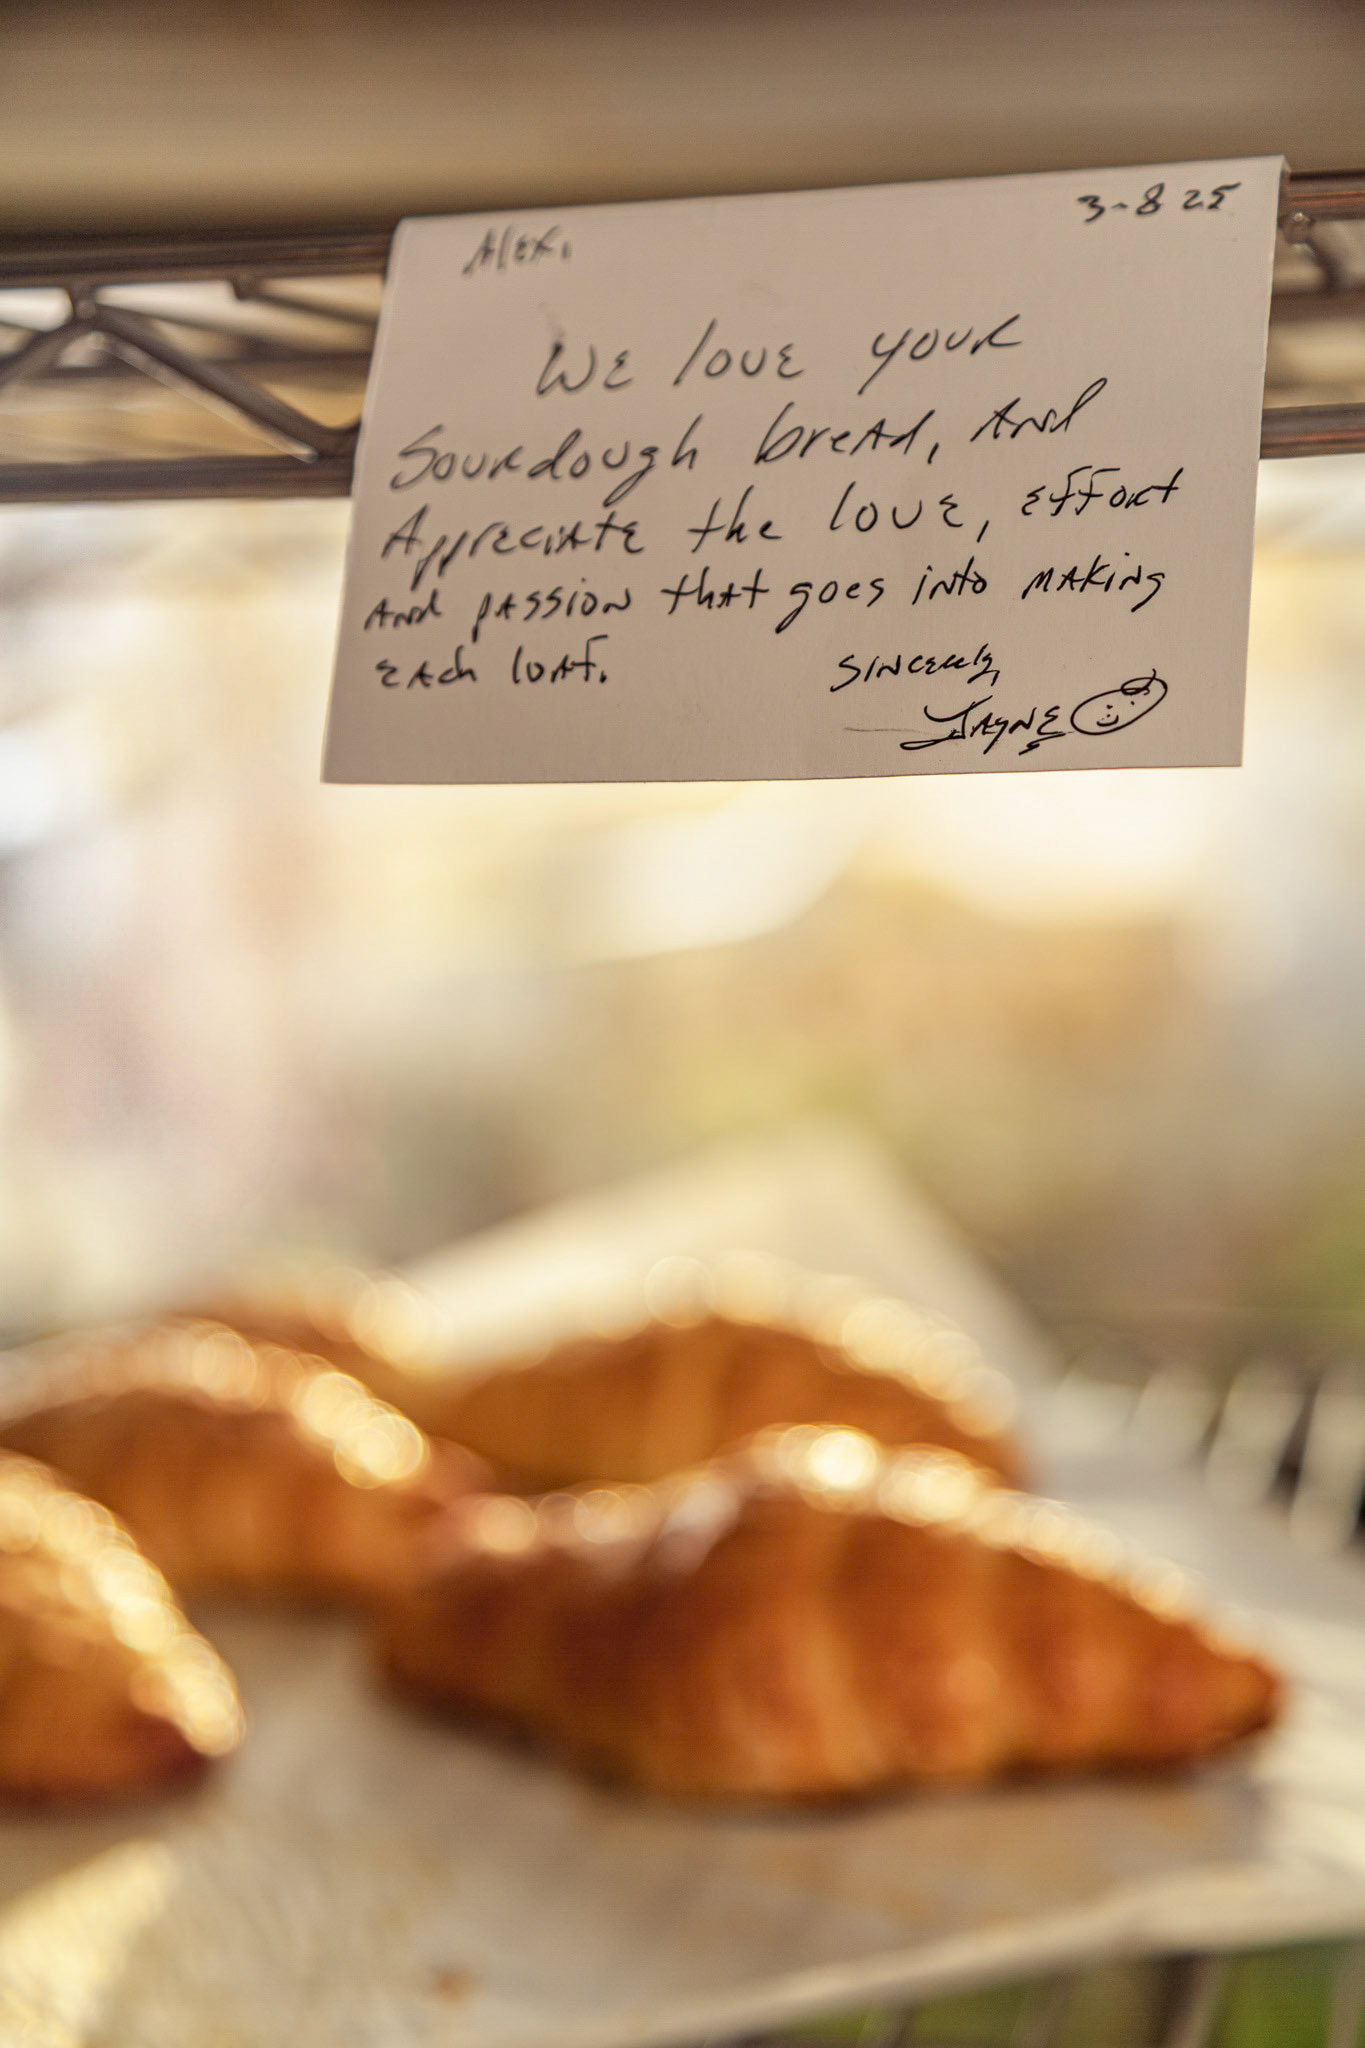 3-8 25
Alex,
We love your
Sourdough bread, and
Appreciate the love, effort
and passion that goes into making
each loaf.
Sincerely,
Jayne